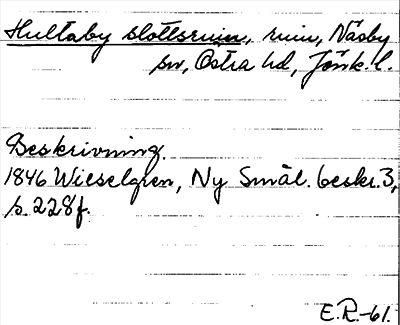 Hultaby slottsruin, ruin, Näsby
sn, Östra hd, Jönk. l.
Beskrivning.
1846 Wieselgren, Ny Smål. beskr. 3,
s. 228f.
E.R.-61.